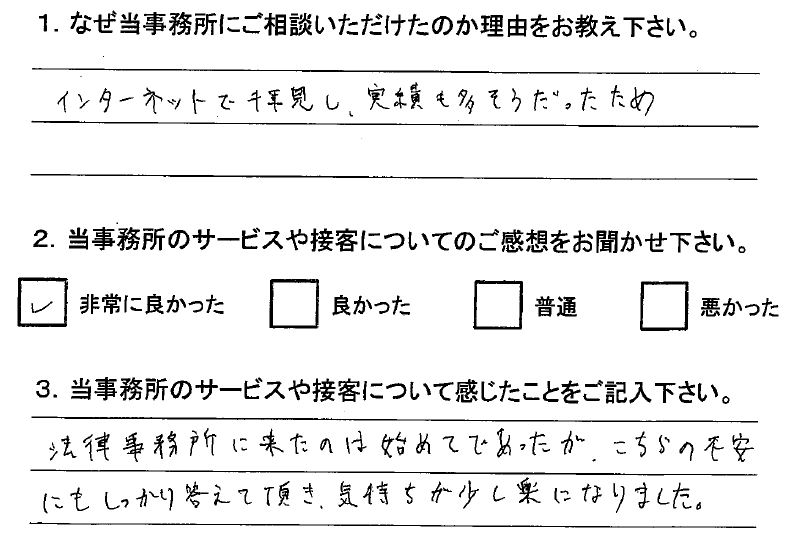 1. なぜ当事務所にご相談いただけたのか理由をお教え下さい。
インターネットで拝見し、実績も多そうだったため
2. 当事務所のサービスや接客についてのご感想をお聞かせ下さい。
✓ 非常に良かった 良かった 普通 悪かった
3. 当事務所のサービスや接客について感じたことをご記入下さい。
法律事務所に来たのは始めてであったが、こちらの不安
にもしっかり答えて頂き、気持ちが少し楽になりました。